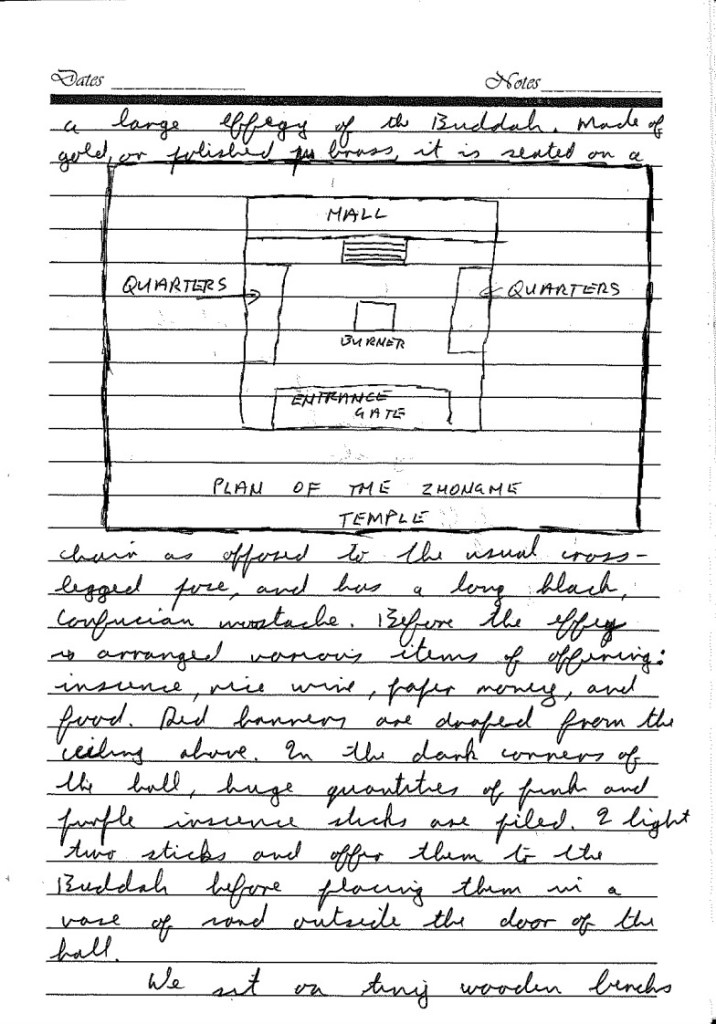 Dates
Notes
a large effegy of the Buddah. Made of
gold, or polished brass, it is seated on a
HALL
QUARTERS
QUARTERS
BURNER
ENTRANCE
GATE
PLAN OF THE ZHONGME
TEMPLE
chair as opposed to the usual cross-
legged pose, and has a long black,
Confucian mostache. Before the effegy
is arranged various items of offering:
inscence, rice wine, paper money, and
food. Red banners are draped from the
ceiling above. In the dark corners of
the hall, huge quantities of pink and
purple inscence sticks are piled. I light
two sticks and offer them to the
Buddah before placing them in a
vase of sand outside the door of the
hall.
We sit on tiny wooden benchs